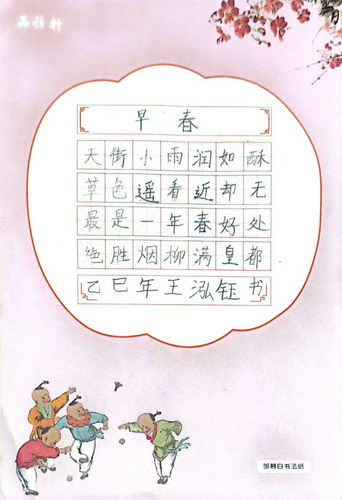 品雅轩
早春
天街小雨润如酥
草色遥看近却无
最是一年春好处
绝胜烟柳满皇都
乙巳年王泓钰书